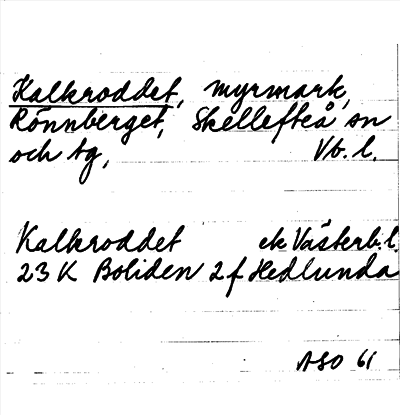 Kalkroddet, myrmark,
Rönnberget, Skellefteå sn
och tg, Vb. l.
Kalkroddet ek Västerb. l.
23 K Boliden 2 f Hedlunda
ASO 61